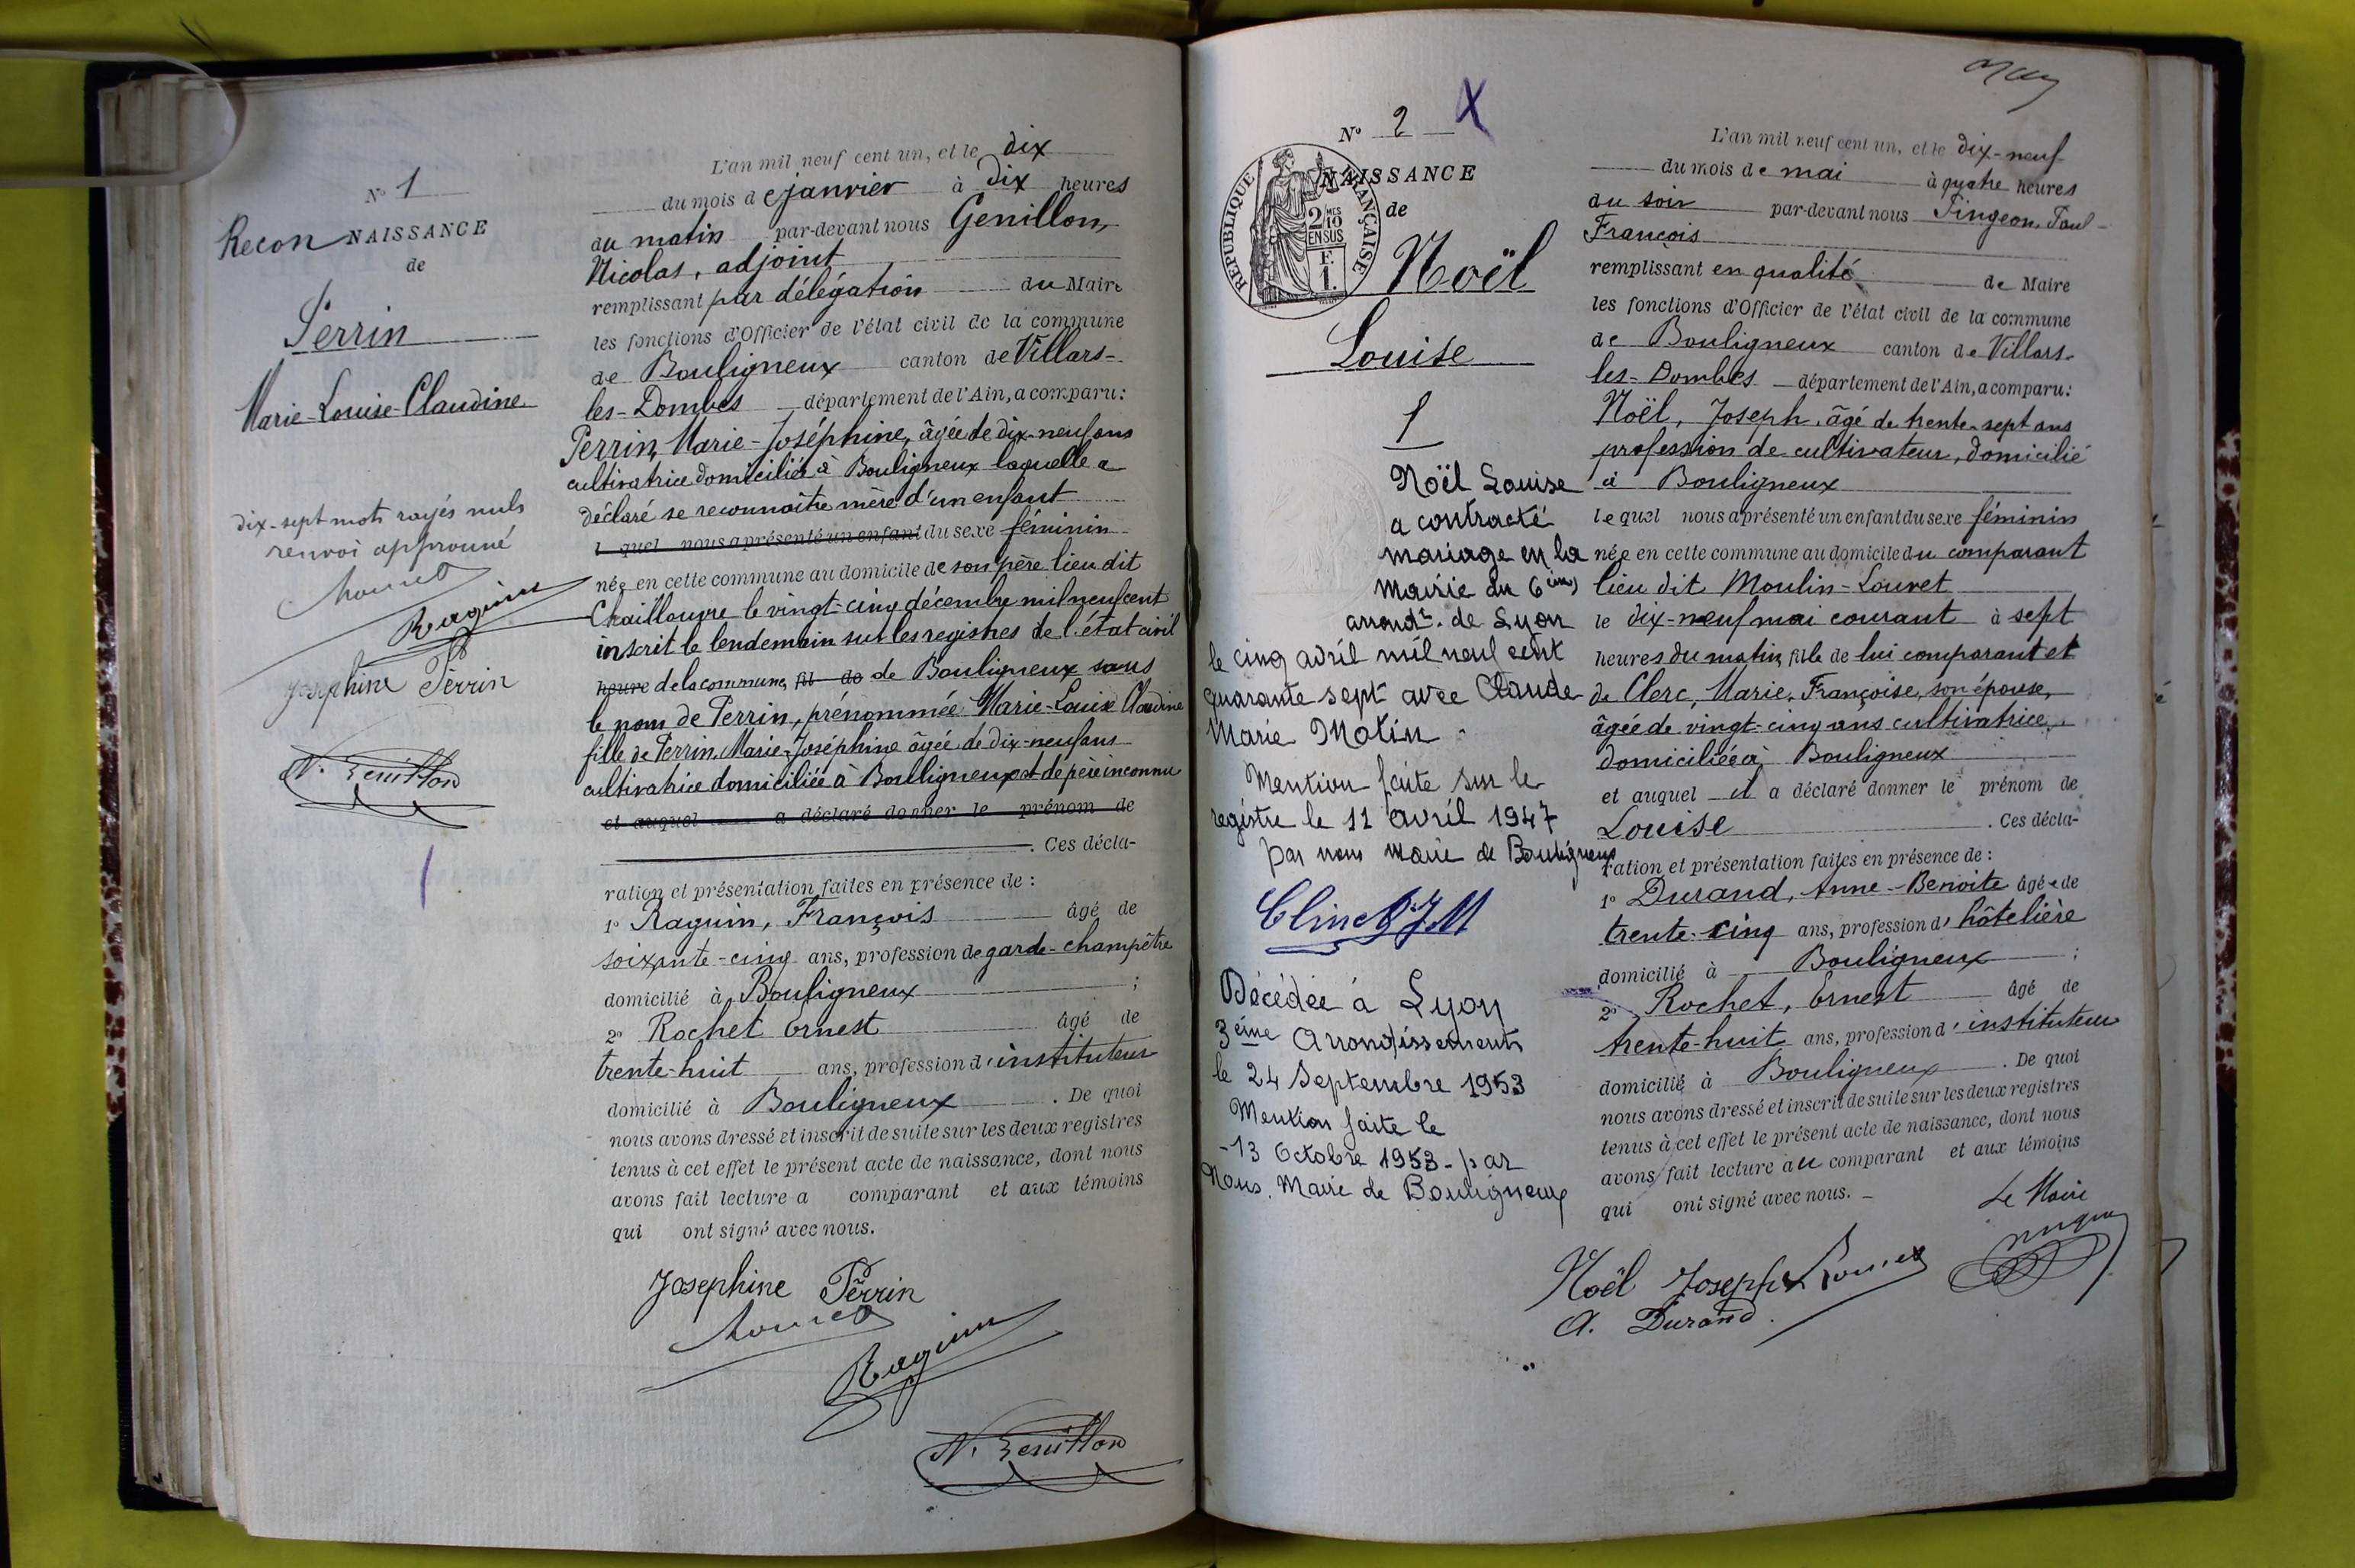 N° 1
Recon NAISSANCE
de
Perrin
Marie-Louise-Claudine
dix-sept mots rayés nuls
renvoi approuvé
Raguin
Josephine Perrin
N. Genillon
L'an mil neuf cent un, et le dix
du mois de janvier à dix heures
du matin par-devant nous Genillon,
Nicolas, adjoint
remplissant par délégation du Maire
les fonctions d'Officier de l'état civil de la commune
de Bouligneux canton de Villars-
les-Dombes département de l'Ain, a comparu:
Perrin, Marie-Joséphine, âgée de dix-neuf ans
cultivatrice domiciliée à Bouligneux laquelle a
déclaré se reconnaître mère d'un enfant
l quel nous a présenté un enfant du sexe féminin
née en cette commune au domicile de son père lieu dit
Chaillouvre le vingt-cinq décembre mil neuf cent
inscrit le lendemain sur les registres de l'état civil
heure de la commune, fil de de Bouligneux sous
le nom de Perrin, prénommée Marie-Louise Claudine
fille de Perrin, Marie-Joséphine âgée de dix-neuf ans
cultivatrice domiciliée à Boulligneux et de père inconnu
et auquel a déclaré donner le prénom de
. Ces décla-
ration et présentation faites en présence de :
1° Raguin, François âgé de
soixante-cinq ans, profession de garde-champêtre
domicilié à Bouligneux ;
2° Rochet Ernest âgé de
trente-huit ans, profession d'instituteur
domicilié à Bouligneux . De quoi
nous avons dressé et inscrit de suite sur les deux registres
tenus à cet effet le présent acte de naissance, dont nous
avons fait lecture a comparant et aux témoins
qui ont signé avec nous.
Josephine Perrin
Raguin
N. Genillon
N° 2 X
REPUBLIQUE FRANÇAISE
2 MES 10
EN SUS
F.
1.
NAISSANCE
de
Noël
Louise
1
Noël Louise
a contracté
mariage en la
mairie du 6ème
arrondt. de Lyon
le cinq avril mil neuf cent
quarante sept avec Claude
Marie Motin
Mention faite sur le
registre le 11 avril 1947
par nous maire de Bouligneux
Décédée à Lyon
3ème Arrondissement
le 24 Septembre 1953
Mention faite le
-13 Octobre 1953- par
Nous. Maire de Bouligneux
L'an mil neuf cent un, et le dix-neuf
du mois de mai à quatre heures
du soir par-devant nous Pingeon, Paul-
François
remplissant en qualité de Maire
les fonctions d'Officier de l'état civil de la commune
de Bouligneux canton de Villars-
les-Dombes département de l'Ain, a comparu:
Noël, Joseph, âgé de trente-sept ans
profession de cultivateur, domicilié
à Bouligneux
lequel nous a présenté un enfant du sexe féminin
née en cette commune au domicile du comparant
lieu dit Moulin-Louvet
le dix-neuf mai courant à sept
heures du matin, fille de lui comparant et
de Clerc, Marie, Françoise, son épouse,
âgée de vingt-cinq ans cultivatrice,
domiciliée à Bouligneux
et auquel il a déclaré donner le prénom de
Louise . Ces décla-
ration et présentation faites en présence de :
1° Durand, Anne-Benoite âgée de
trente-cinq ans, profession d'hôtelière
domicilié à Bouligneux ;
2° Rochet, Ernest âgé de
trente-huit ans, profession d'instituteur
domicilié à Bouligneux . De quoi
nous avons dressé et inscrit de suite sur les deux registres
tenus à cet effet le présent acte de naissance, dont nous
avons fait lecture au comparant et aux témoins
qui ont signé avec nous. -
Le Maire
Noël Joseph
A. Durand.